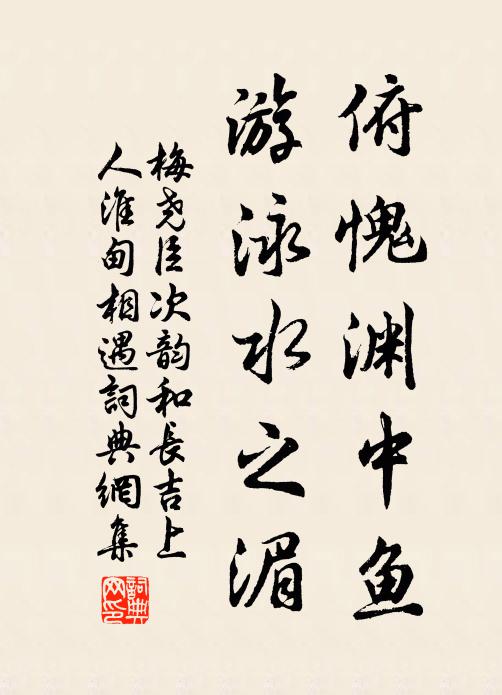 俯愧渊中鱼
游泳水之湄
梅尧臣次韵和長吉上
人淮甸相遇詞典網集
詞典网印